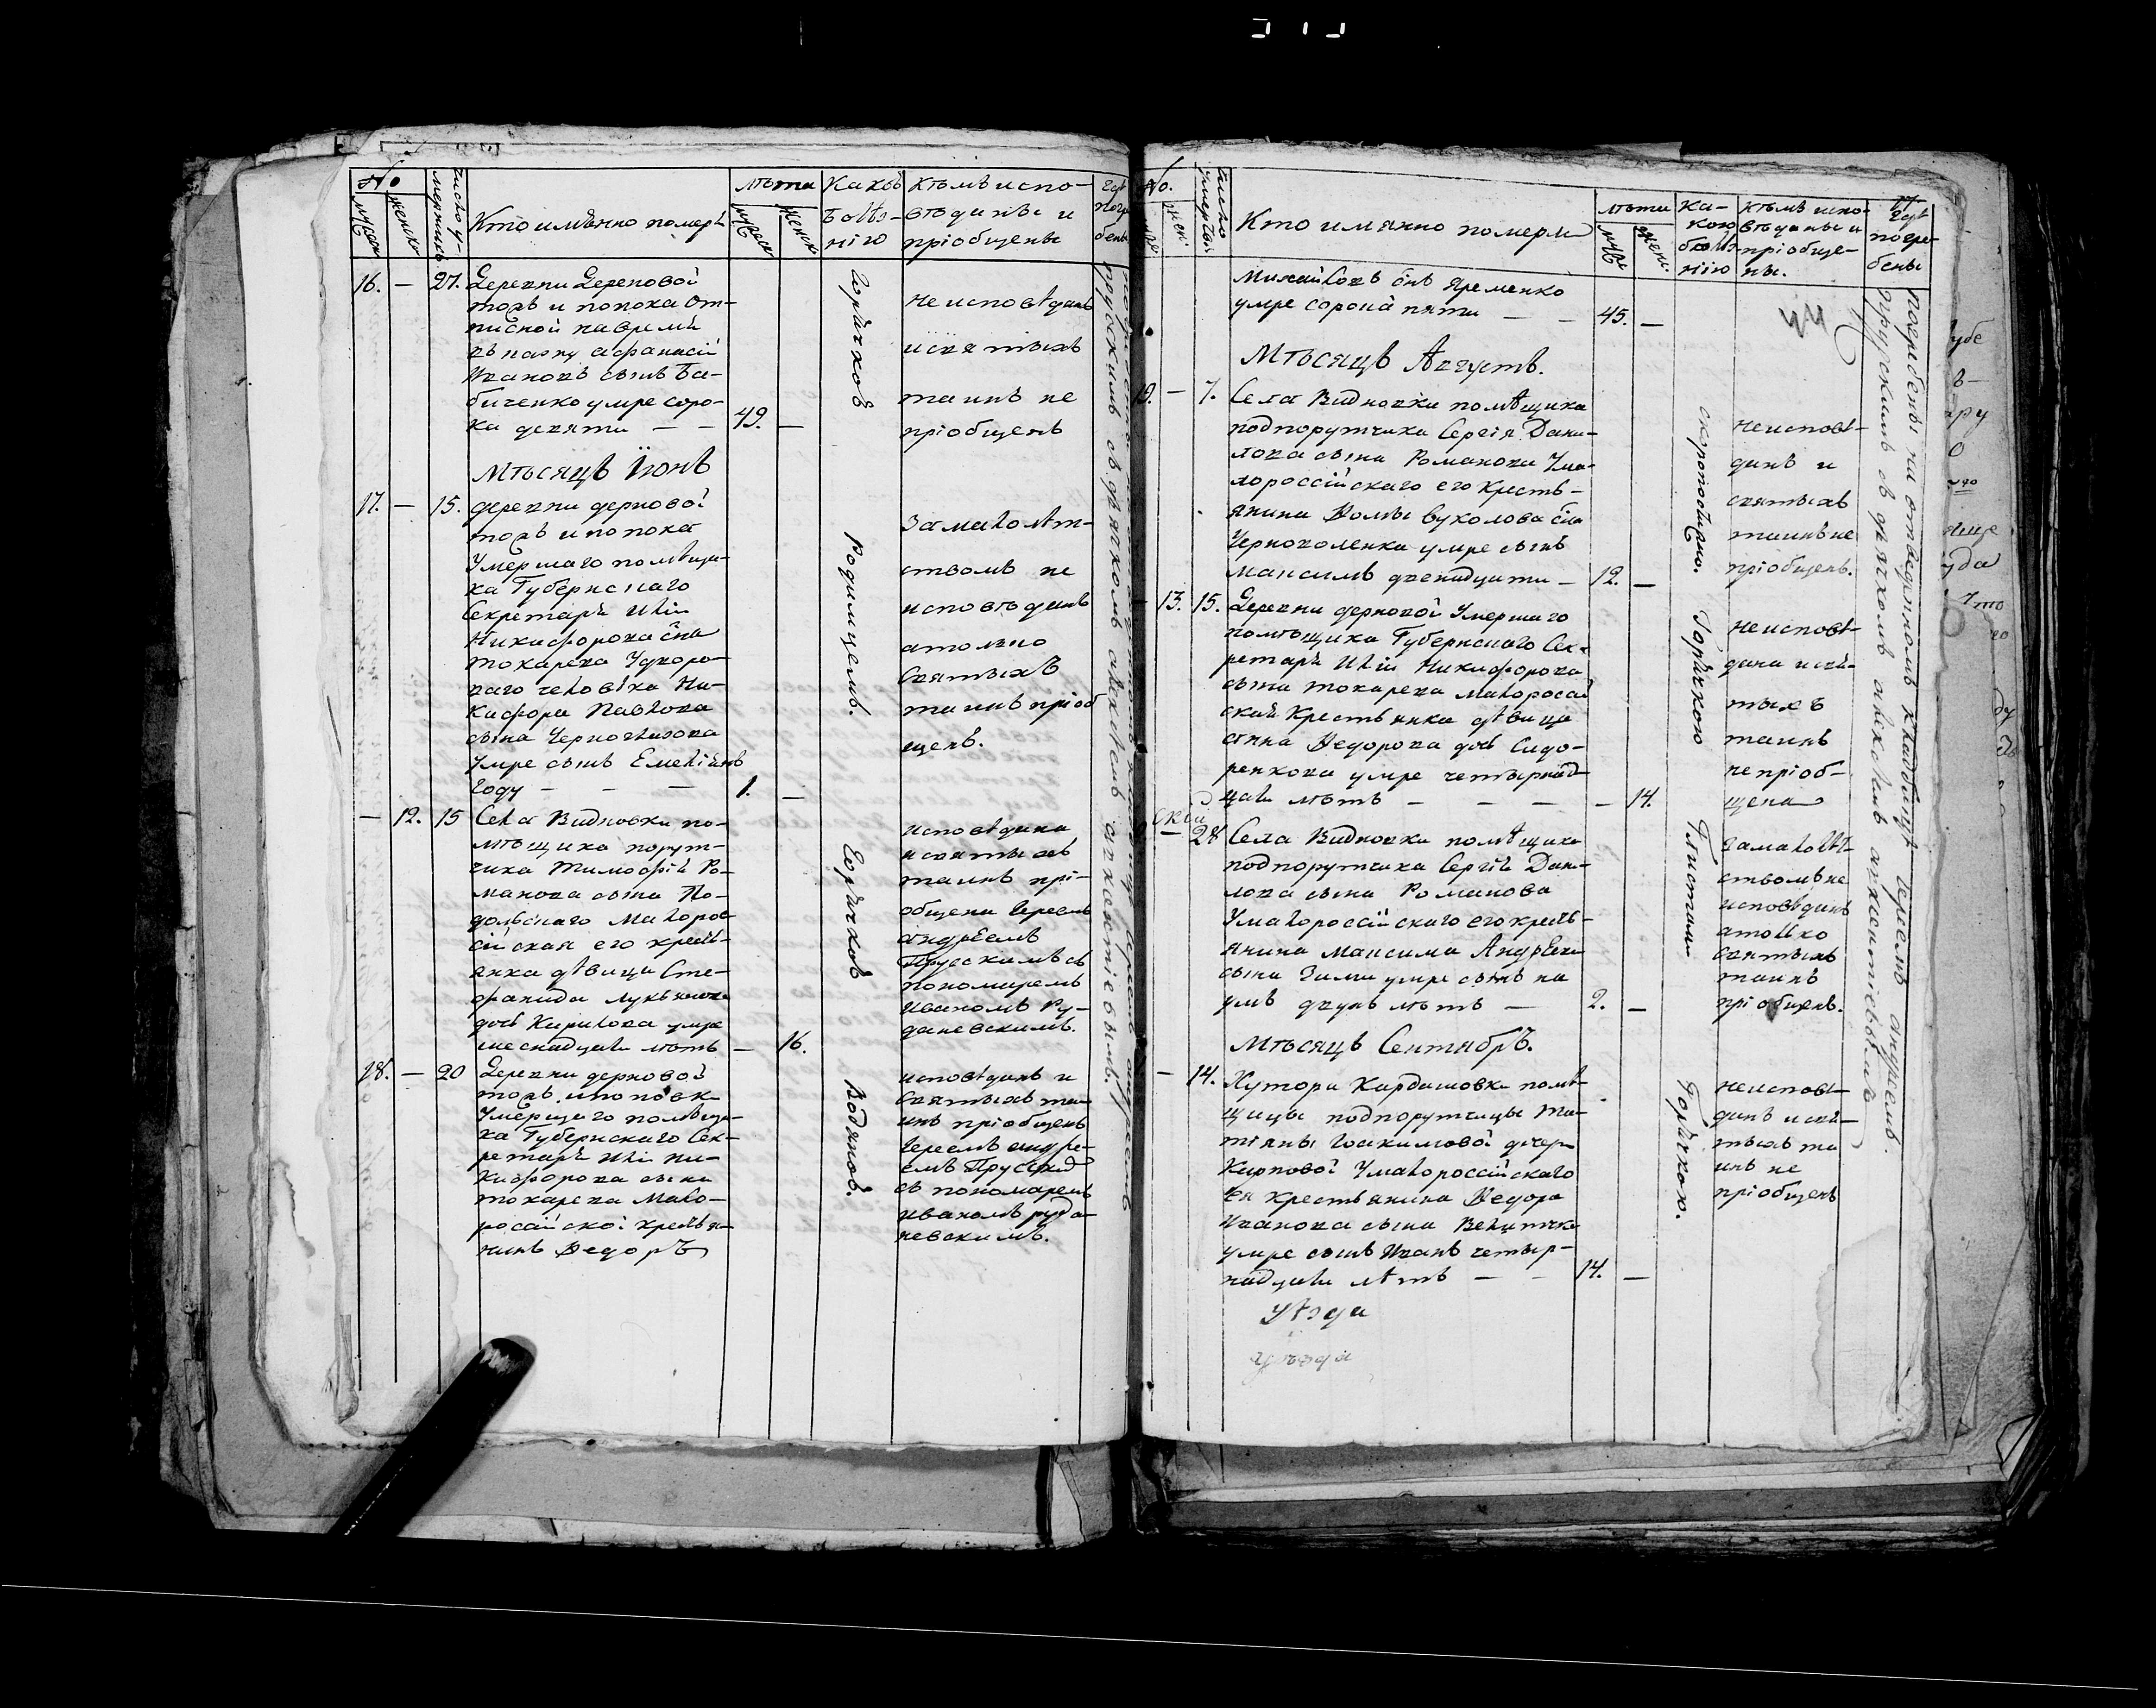 No
мужеск
женско
число у-
мершихъ
Кто имѣнно померъ
лѣта
мужеск
женск
Какой
болѣ-
нію
кѣмъ испо-
вѣданы и
пріобщены
16. — 27. Деревни Дерновой
тожъ и попова от-
Ивановъ сынъ Ба-
биченко умре соро-
ка девяти — — 49. —
Горячкою
не исповѣданъ
и святыхъ
таинъ не
пріобщенъ
Мѣсяцъ Іюнь
17. — 15. деревни дерновой
тожъ и попова
Умершаго помѣщи-
ка Губернскаго
Секретаря Иліи
Никифорова сна
токарева Удворо-
ваго человѣка Ни-
кифора Павлова
сына
умре сынъ Емеліянъ
году — — — 1. —
Родимцемъ.
За малолѣт-
ствомъ не
исповѣданъ
атолко
Святыхъ
таинъ пріоб
щенъ.
— 12. 15 Села Видновки по-
мѣщика порут-
чика Тимофѣя Ро-
манова сына По-
дольскаго Малорос-
сійская его кресть-
янка дѣвица Сте-
фанида
дочь Кирилова умре
шеснадцати лѣтъ — 16.
Горячкою
исповѣдана
и святыхъ
таинъ прі-
общена Іереемъ
андреемъ
Прусскимъ съ
пономаремъ
Иваномъ Ру-
даневскимъ.
18. — 20 Деревни дерновой
тожъ и попова
Умершаго помѣщи-
ка Губернскаго Сек-
ретаря Иліи Ни-
кифорова сына
токарева Мало-
россійской крестья-
нинъ Ѳедоръ
Водяною.
исповѣданъ и
Святыхъ та-
инъ пріобщенъ
Іереемъ андре-
емъ Прускимъ
съ пономаремъ
Иваномъ руда-
невскимъ.
No.
муже
жен.
число
умерш
Кто имянно померли
лѣта
муж
жен.
Ка-
кою
болѣ-
нію
кѣмъ испо-
вѣданы и
пріобще-
ны.
77
гдѣ
погре-
бены
Михайловъ снъ Яременко
умре сорока пяти — — 45. —
44
Мѣсяцъ Августъ.
19. — 7. Села Видновки помѣщика
подпорутчика Сергія Дани-
лова сына Романова Ума-
лороссійскаго его кресть-
янина Ѳомы Вуколова сна
Черноголенка умре сынъ
Максимъ двенадцати — 12. —
скоропостижно.
Неисповѣ-
данъ и
святыхъ
таинъ не
пріобщенъ.
— 13. 15. Деревни дерновой Умершаго
помѣщика Губернскаго Сек-
ретаря Иліи Никифорова
сына токарева малороссій
ская крестьянка дѣвица
Ѳедорова дочь Сидо-
ренкова умре четырнад-
цати лѣтъ — — — — 14.
Горячкою
Неисповѣ-
дана и свя-
тыхъ
таинъ
не пріоб-
щена
— 28 Села Видновки помѣщика
подпорутчика Сергія Дани-
лова сына Романова
Умалороссійскаго его кресть-
янина Максима Андрѣева
сына Зими умре сынъ на
умъ двухъ лѣтъ — 2. —
Глистами
За малолѣт-
ствомъ не
исповѣданъ
атолко
святыхъ
таинъ
пріобщенъ.
Мѣсяцъ Сентябрь.
— 14. Хутора Кардашовки помѣ-
щицы подпорутчицы та-
тіяны Іоакимовой дочери
Карповой Умалороссійскаго
ея крестьянина Ѳедора
Иванова сына Величка
умре сынъ Иванъ четыр-
надцати лѣтъ — — 14. —
Горячкою.
Неисповѣ-
данъ и свя-
тыхъ та
инъ не
пріобщенъ
Погребены на отведенномъ кладбищѣ Іереемъ андреемъ
Прускимъ съ дячкомъ
уѣзда
уѣзда